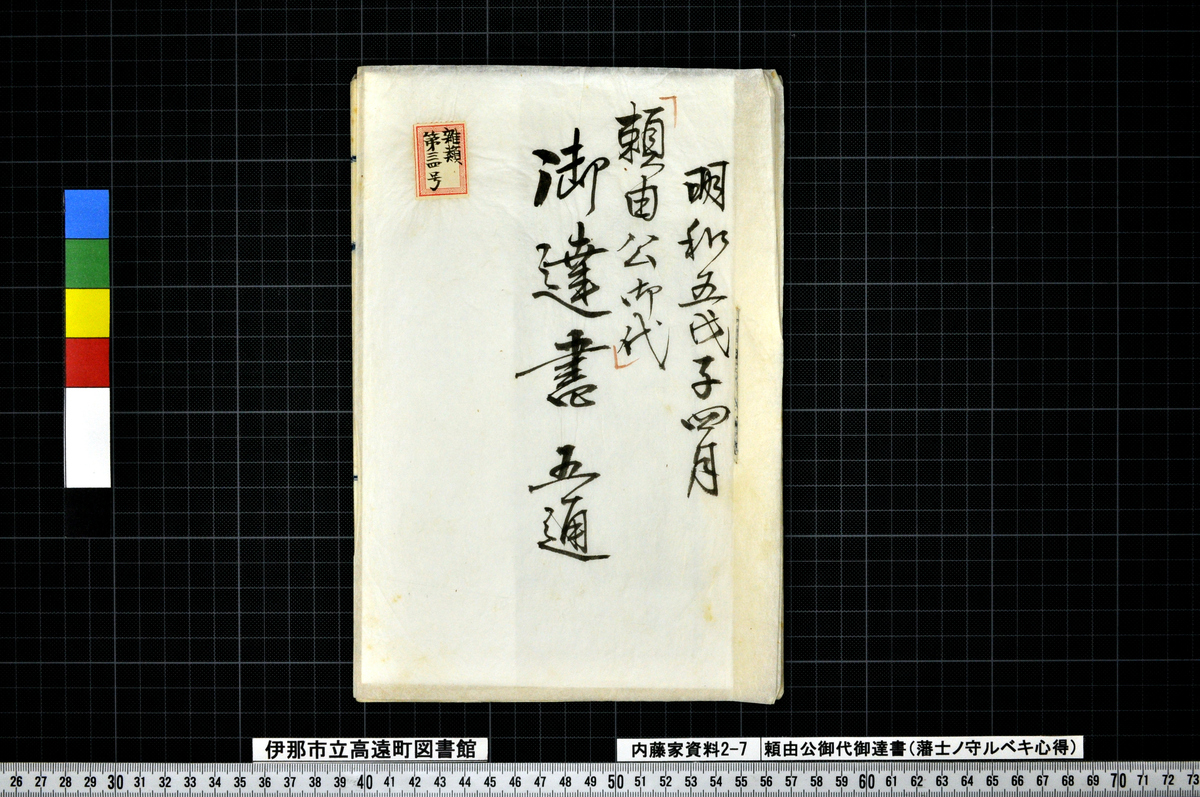 明和五戊子四月
「頼由公御代」
御達書 五通
雑類
第三四号
伊那市立高遠町図書館
内藤家資料2-7
頼由公御代御達書(藩士ノ守ルベキ心得)
26 27 28 29 30 31 32 33 34 35 36 37 38 39 40 41 42 43 44 45 46 47 48 49 50 51 52 53 54 55 56 57 58 59 60 61 62 63 64 65 66 67 68 69 70 71 72 73